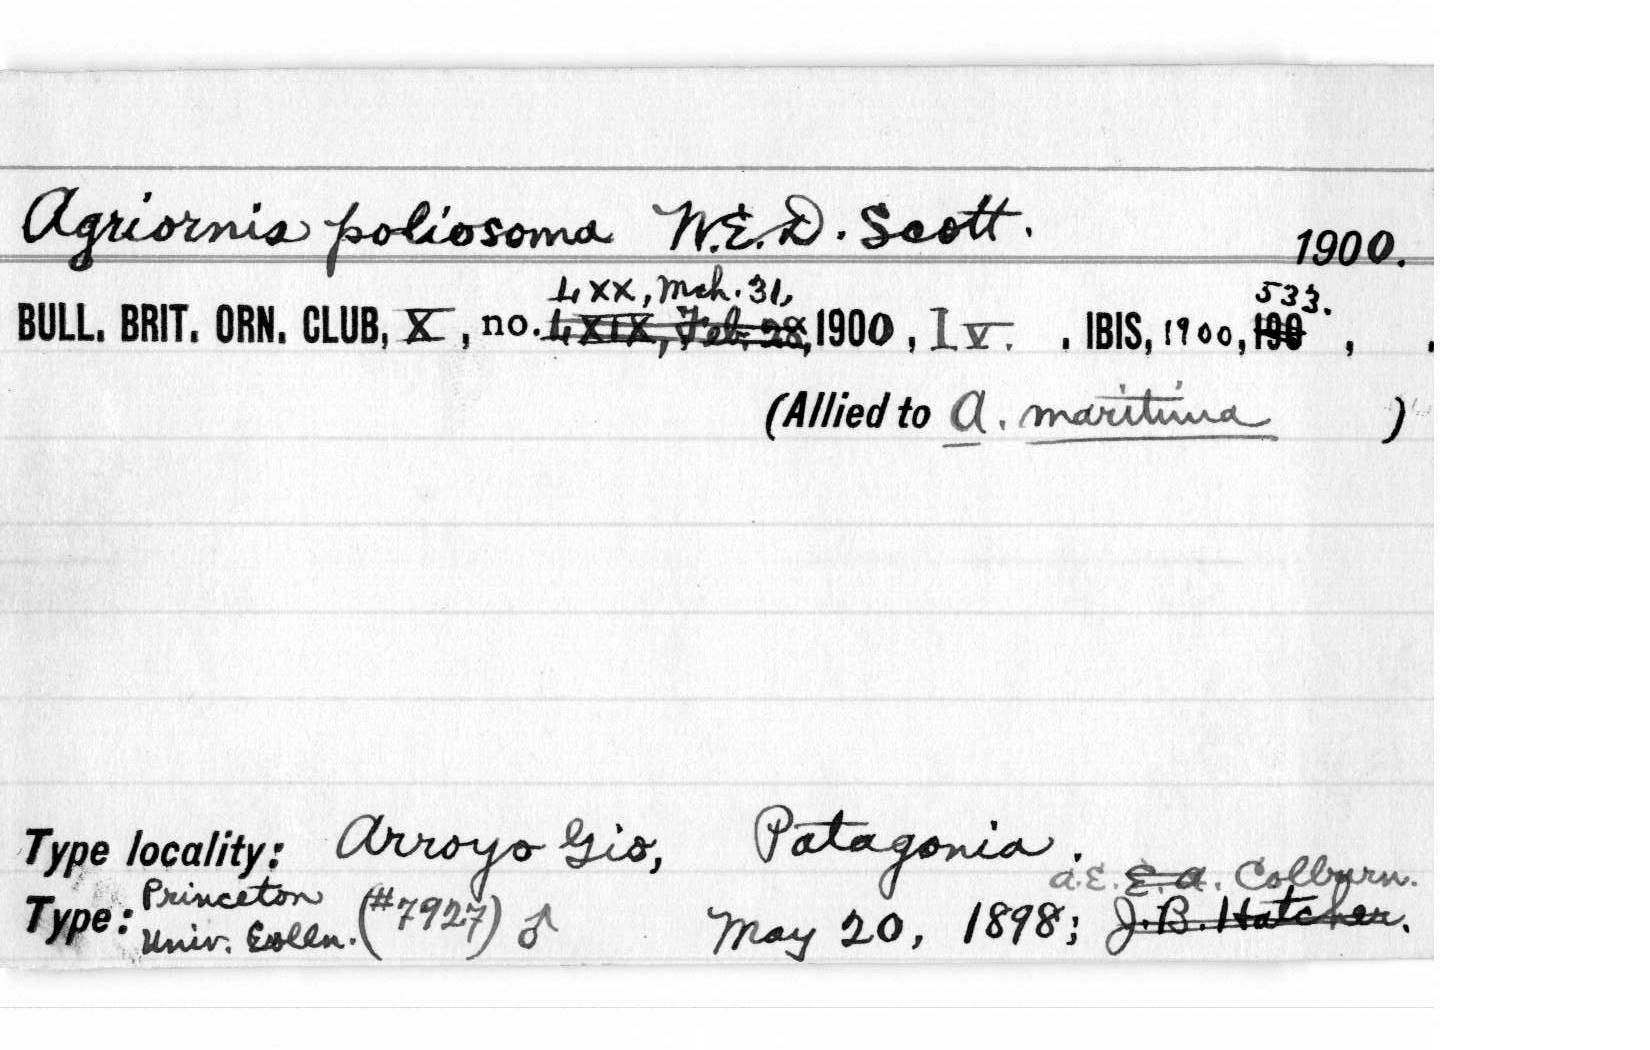 Agriornis poliosoma W.E.D. Scott.
1900.
LXX, Mch. 31,
533.
BULL. BRIT. ORN. CLUB, X, no. LXIX, Feb. 28, 1900, IV. . IBIS, 1900, 190 , .
(Allied to A. maritima )
Type locality: Arroyo Gio, Patagonia.
A.E. E.A. Colburn.
Type: Princeton Univ. Colln. (#7927) ♂ May 20, 1898; J.B. Hatcher.